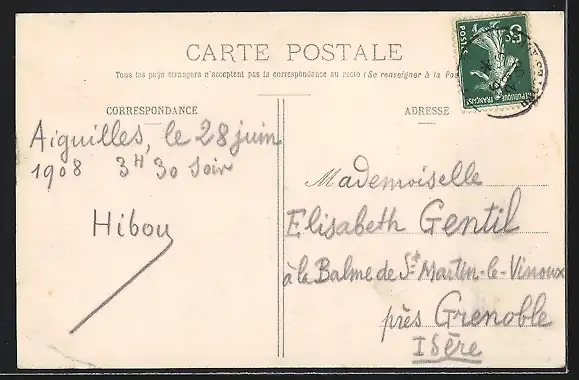 CARTE POSTALE
Tous les pays étrangers n'acceptent pas la correspondance au recto (Se renseigner à la Pos
CORRESPONDANCE
ADRESSE
Aiguilles, le 28 juin
1908 3H 30 soir
Hibou
Mademoiselle
Elisabeth Gentil
à la Balme de St Martin-le-Vinoux
près Grenoble
Isère
5c
POSTES
RÉPUBLIQUE FRANÇAISE